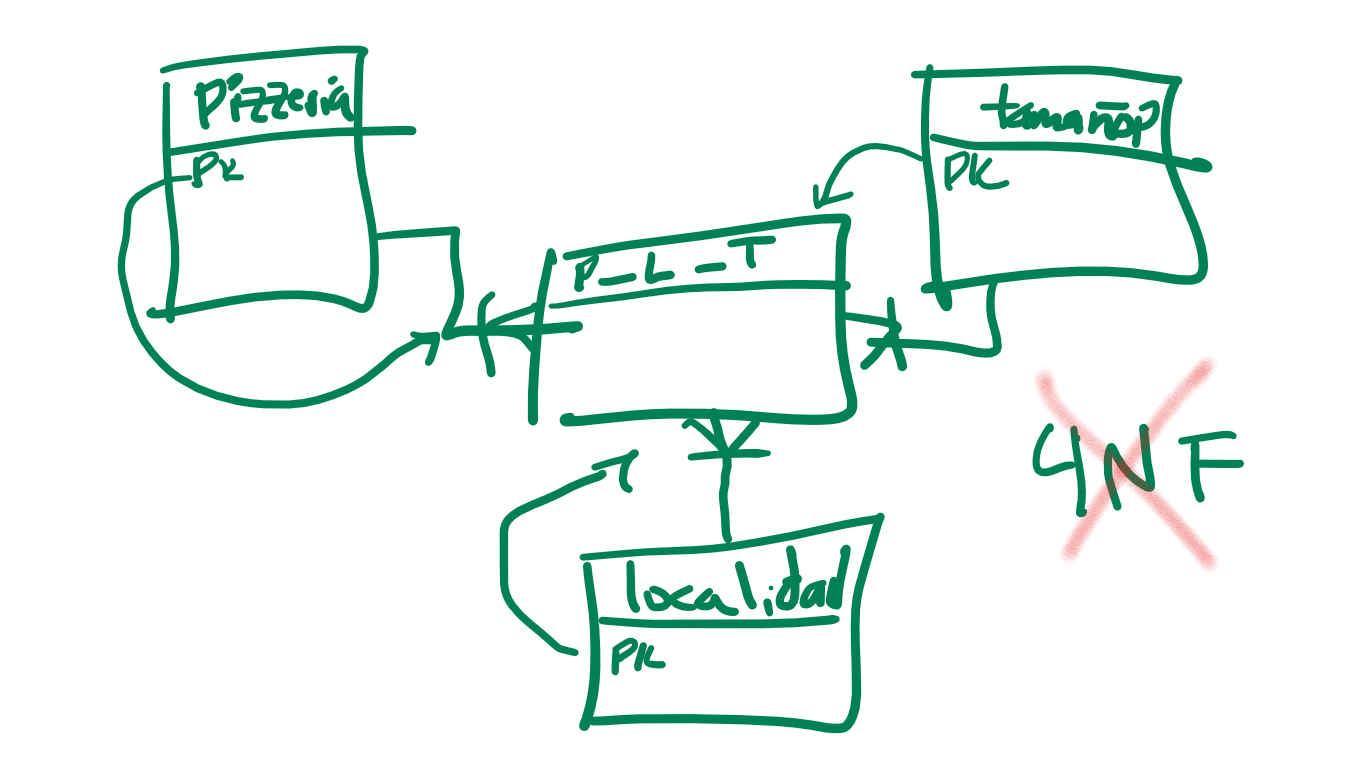 Pizzeria
PK
tamañoP
PK
P_L_T
4NF
localidad
PK